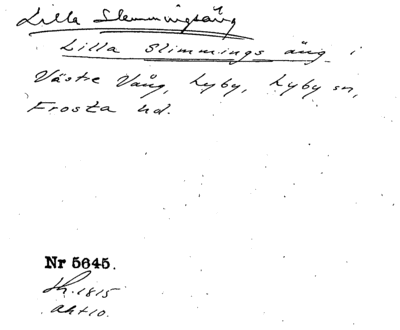 Lilla Slemmingsäng
Lilla Slimmings äng i
Västre Vång, Lyby, Lyby sn,
Frosta hd.
Nr 5645.
Sk. 1815
akt 10.